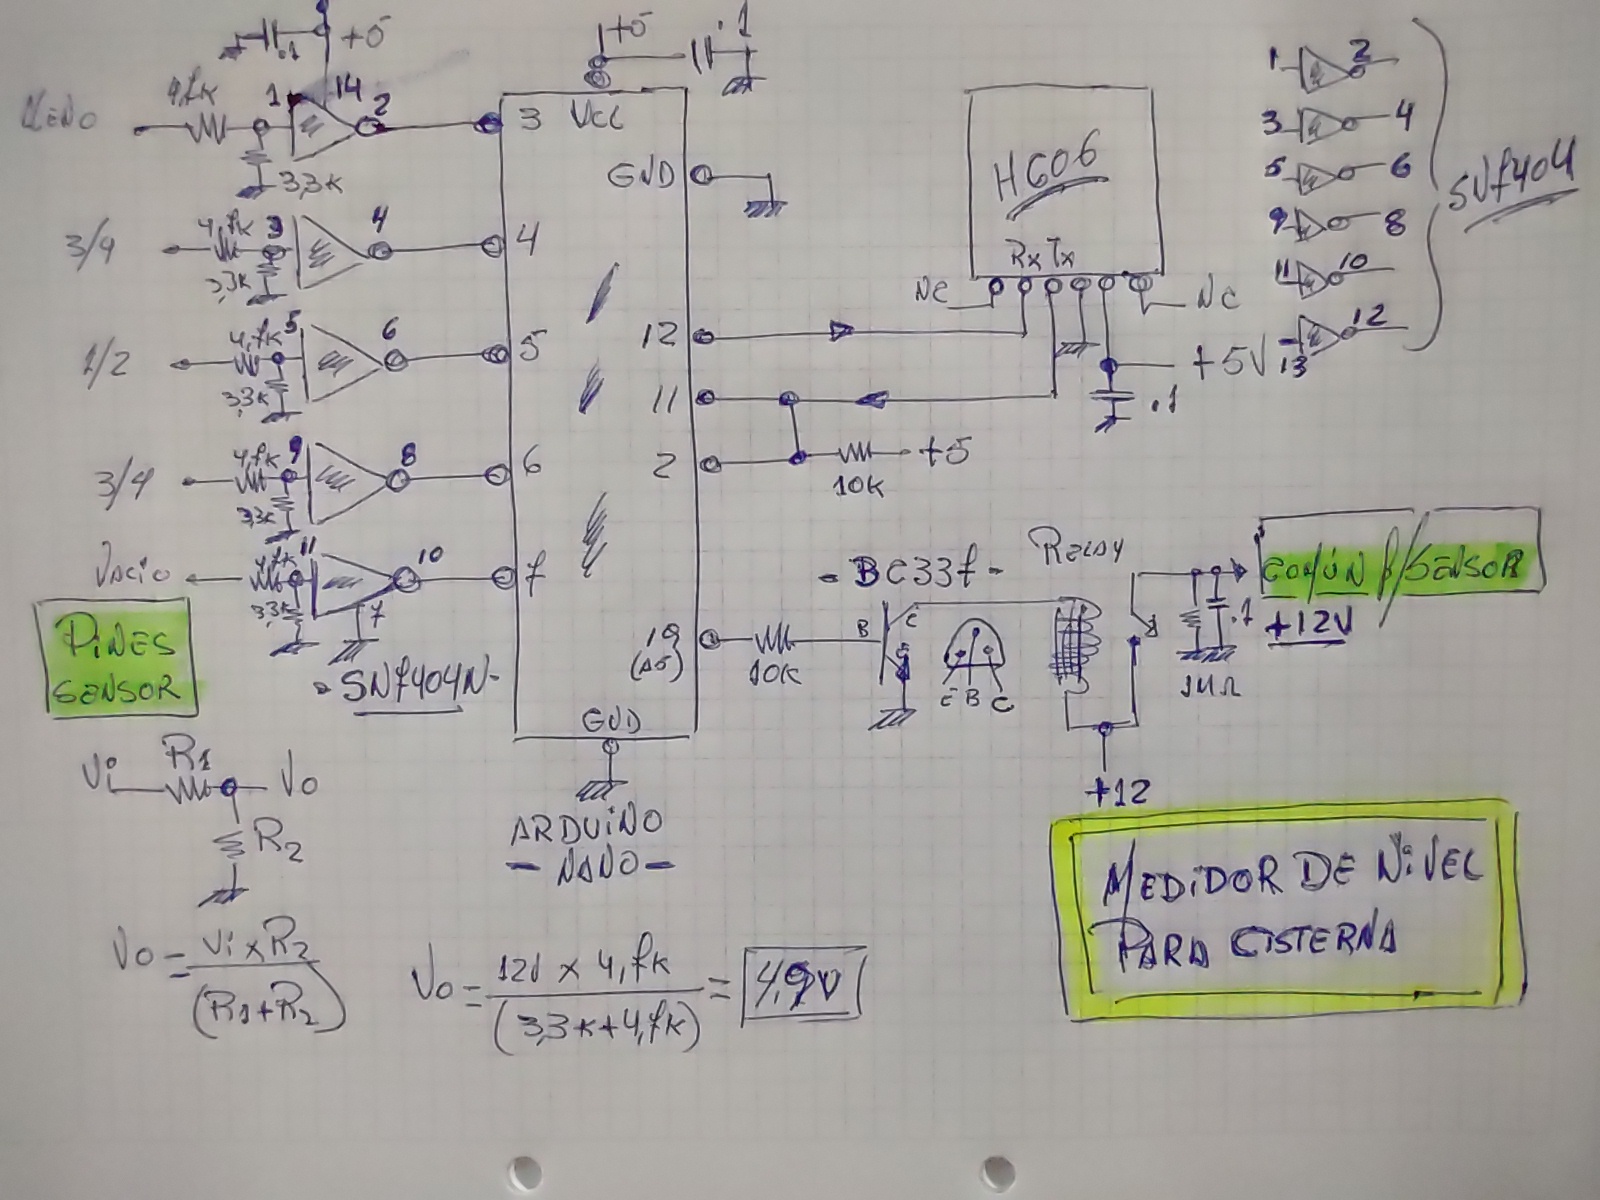 .1
+5
+5
.1
4,7K
1
14
2
LLENO
3,3K
3
VCC
GND
3/4
4,7K
3
4
3,3K
4
1/2
4,7K
5
6
3,3K
5
3/4
4,7K
9
8
3,3K
6
VACIO
4,7K
11
10
3,3K
7
7
PINES
SENSOR
- SN7404N -
12
11
2
19
(A5)
GND
ARDUINO
- NANO -
HC06
Rx Tx
NC
NC
+5V
.1
+5
10K
10K
- BC337 -
B
C
E
E B C
RELAY
+12
COMÚN P/SENSOR
+12V
.1
1MΩ
1 2
3 4
5 6
9 8
11 10
13 12
SN7404
Vi
R1
Vo
R2
Vo = Vi x R2
(R1+R2)
Vo = 12V x 4,7K = 4,9V
(3,3K+4,7K)
MEDIDOR DE NIVEL
PARA CISTERNA